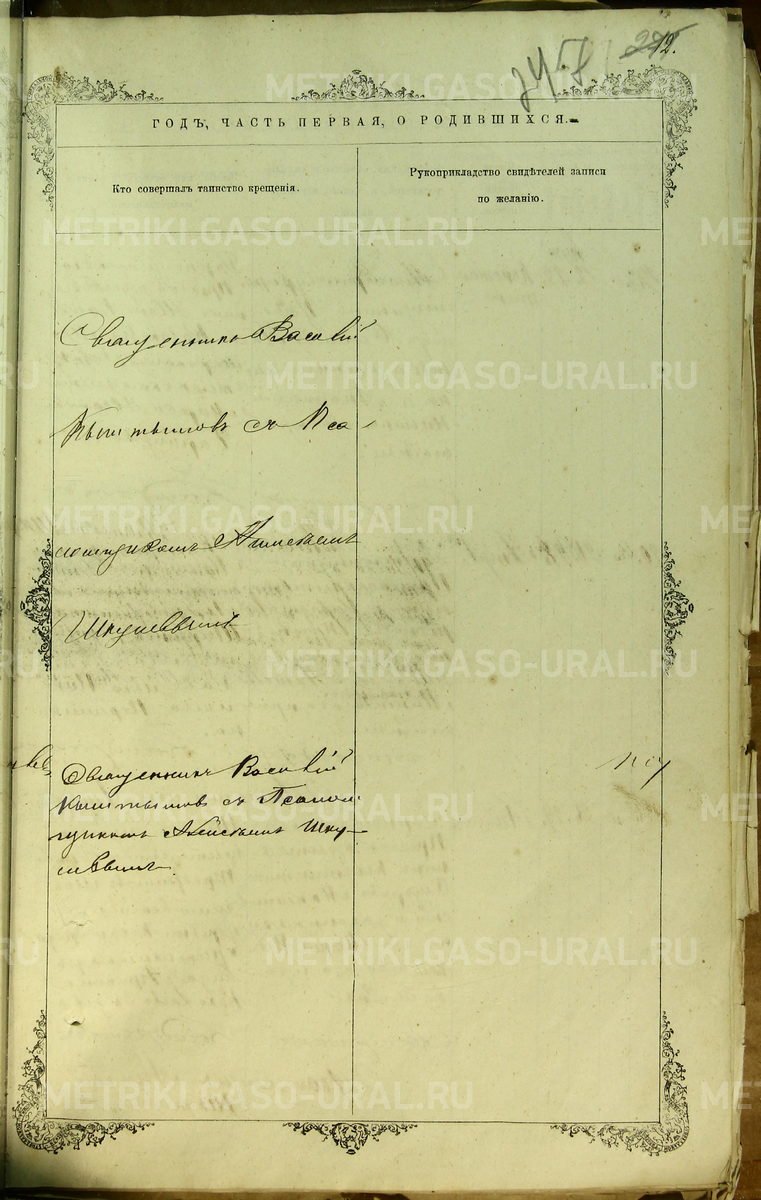 12.
ГОДЪ, ЧАСТЬ ПЕРВАЯ, О РОДИВШИХСЯ.
Кто совершалъ таинство крещенія.
Рукоприкладство свидѣтелей записи
по желанію.
Священникъ Василій
Кыштымовъ съ Пса-
ломщикомъ Алексѣемъ
Священникъ Василій
Кыштымовъ съ Псалом-
щикомъ Алексѣемъ
METRIKI.GASO-URAL.RU